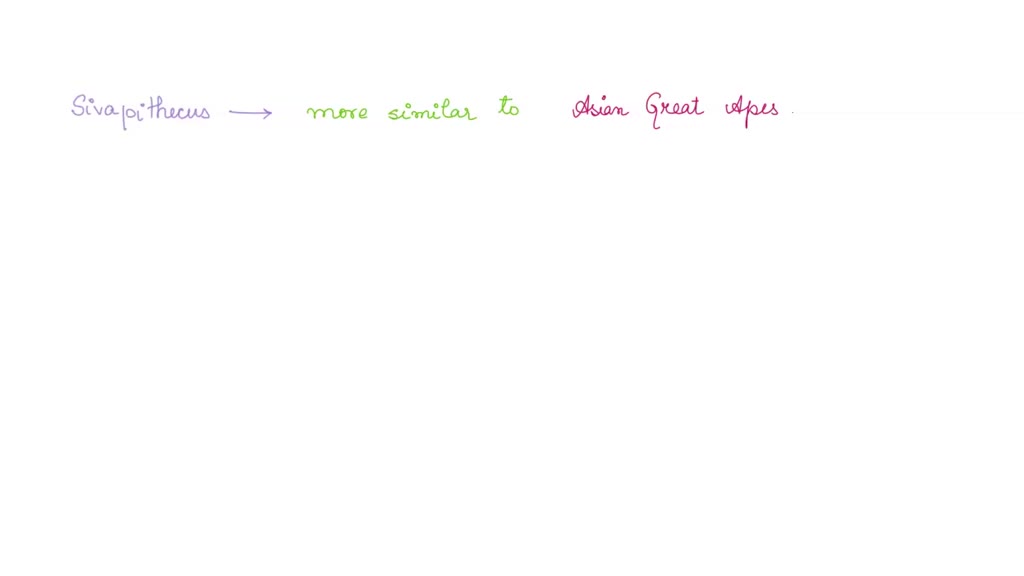 Sivapithecus → more similar to Asian Great Apes.